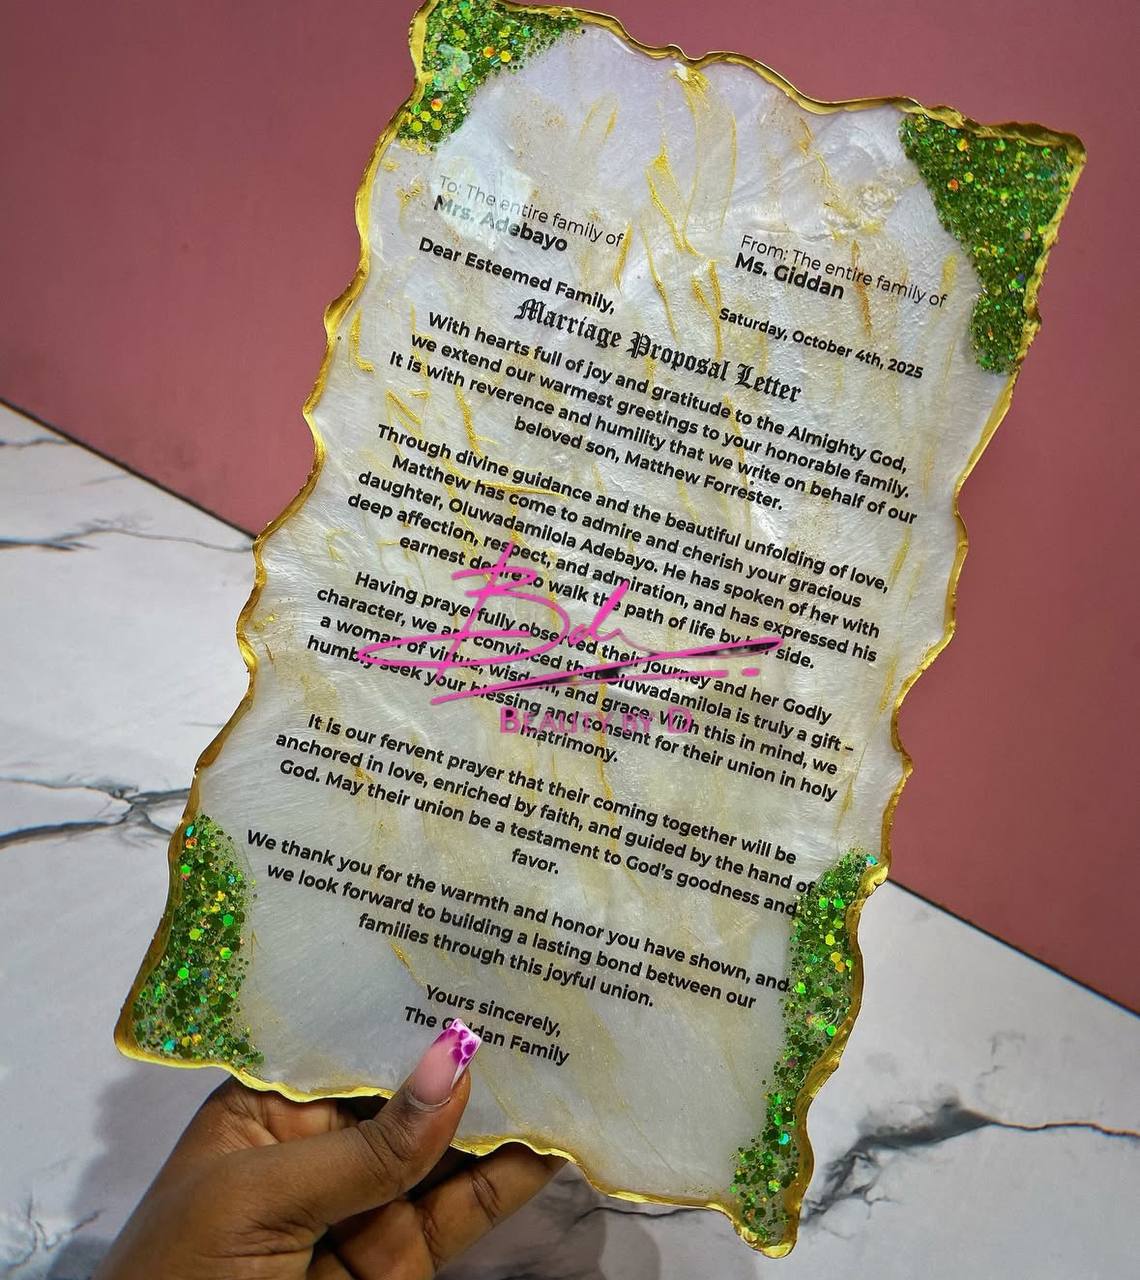 To: The entire family of
Mrs. Adebayo
From: The entire family of
Ms. Giddan
Dear Esteemed Family,
Saturday, October 4th, 2025
Marriage Proposal Letter
With hearts full of joy and gratitude to the Almighty God,
we extend our warmest greetings to your honorable family.
It is with reverence and humility that we write on behalf of our
beloved son, Matthew Forrester.
Through divine guidance and the beautiful unfolding of love,
Matthew has come to admire and cherish your gracious
daughter, Oluwadamilola Adebayo. He has spoken of her with
deep affection, respect, and admiration, and has expressed his
earnest desire to walk the path of life by her side.
Having prayerfully observed their journey and her Godly
character, we are convinced that Oluwadamilola is truly a gift –
a woman of virtue, wisdom, and grace. With this in mind, we
humbly seek your blessing and consent for their union in holy
matrimony.
It is our fervent prayer that their coming together will be
anchored in love, enriched by faith, and guided by the hand of
God. May their union be a testament to God's goodness and
favor.
We thank you for the warmth and honor you have shown, and
we look forward to building a lasting bond between our
families through this joyful union.
Yours sincerely,
The Giddan Family
BEAUTY BY D